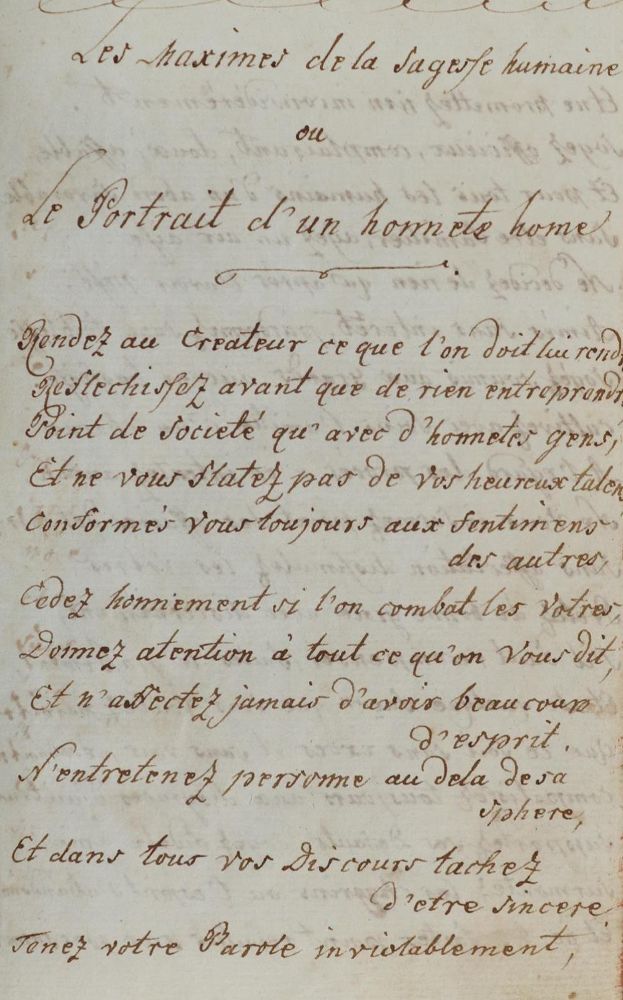 Les Maximes de la Sagesse humaine
ou
Le Portrait d'un honnete home
Rendez au Createur ce que l'on doit lui rend
Reflechissez avant que de rien entreprendr
Point de Societé qu'avec d'honnetes gens,
Et ne vous flatez pas de vos heureux talen
Conformés vous toujours aux Sentimens
des autres,
Cedez honnement si l'on combat les votres,
Donnez atention à tout ce qu'on vous dit,
Et n'affectez jamais d'avoir beaucoup
d'esprit.
N'entretenez personne au dela de sa
Sphere,
Et dans tous vos Discours tachez
d'etre sincere
Tenez votre Parole inviolablement,